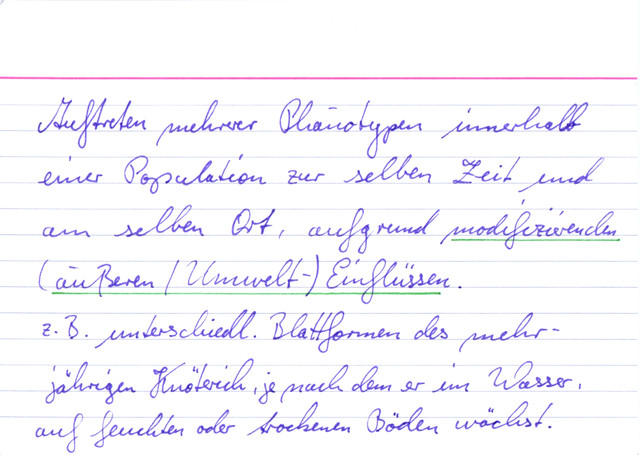 Auftreten mehrerer Phänotypen innerhalb
einer Population zur selben Zeit und
am selben Ort, aufgrund modifizierenden
(äußeren / Umwelt-) Einflüssen.
z. B. unterschiedl. Blattformen des mehr-
jährigen Knöterich, je nach dem er im Wasser,
auf feuchten oder trockenen Böden wächst.